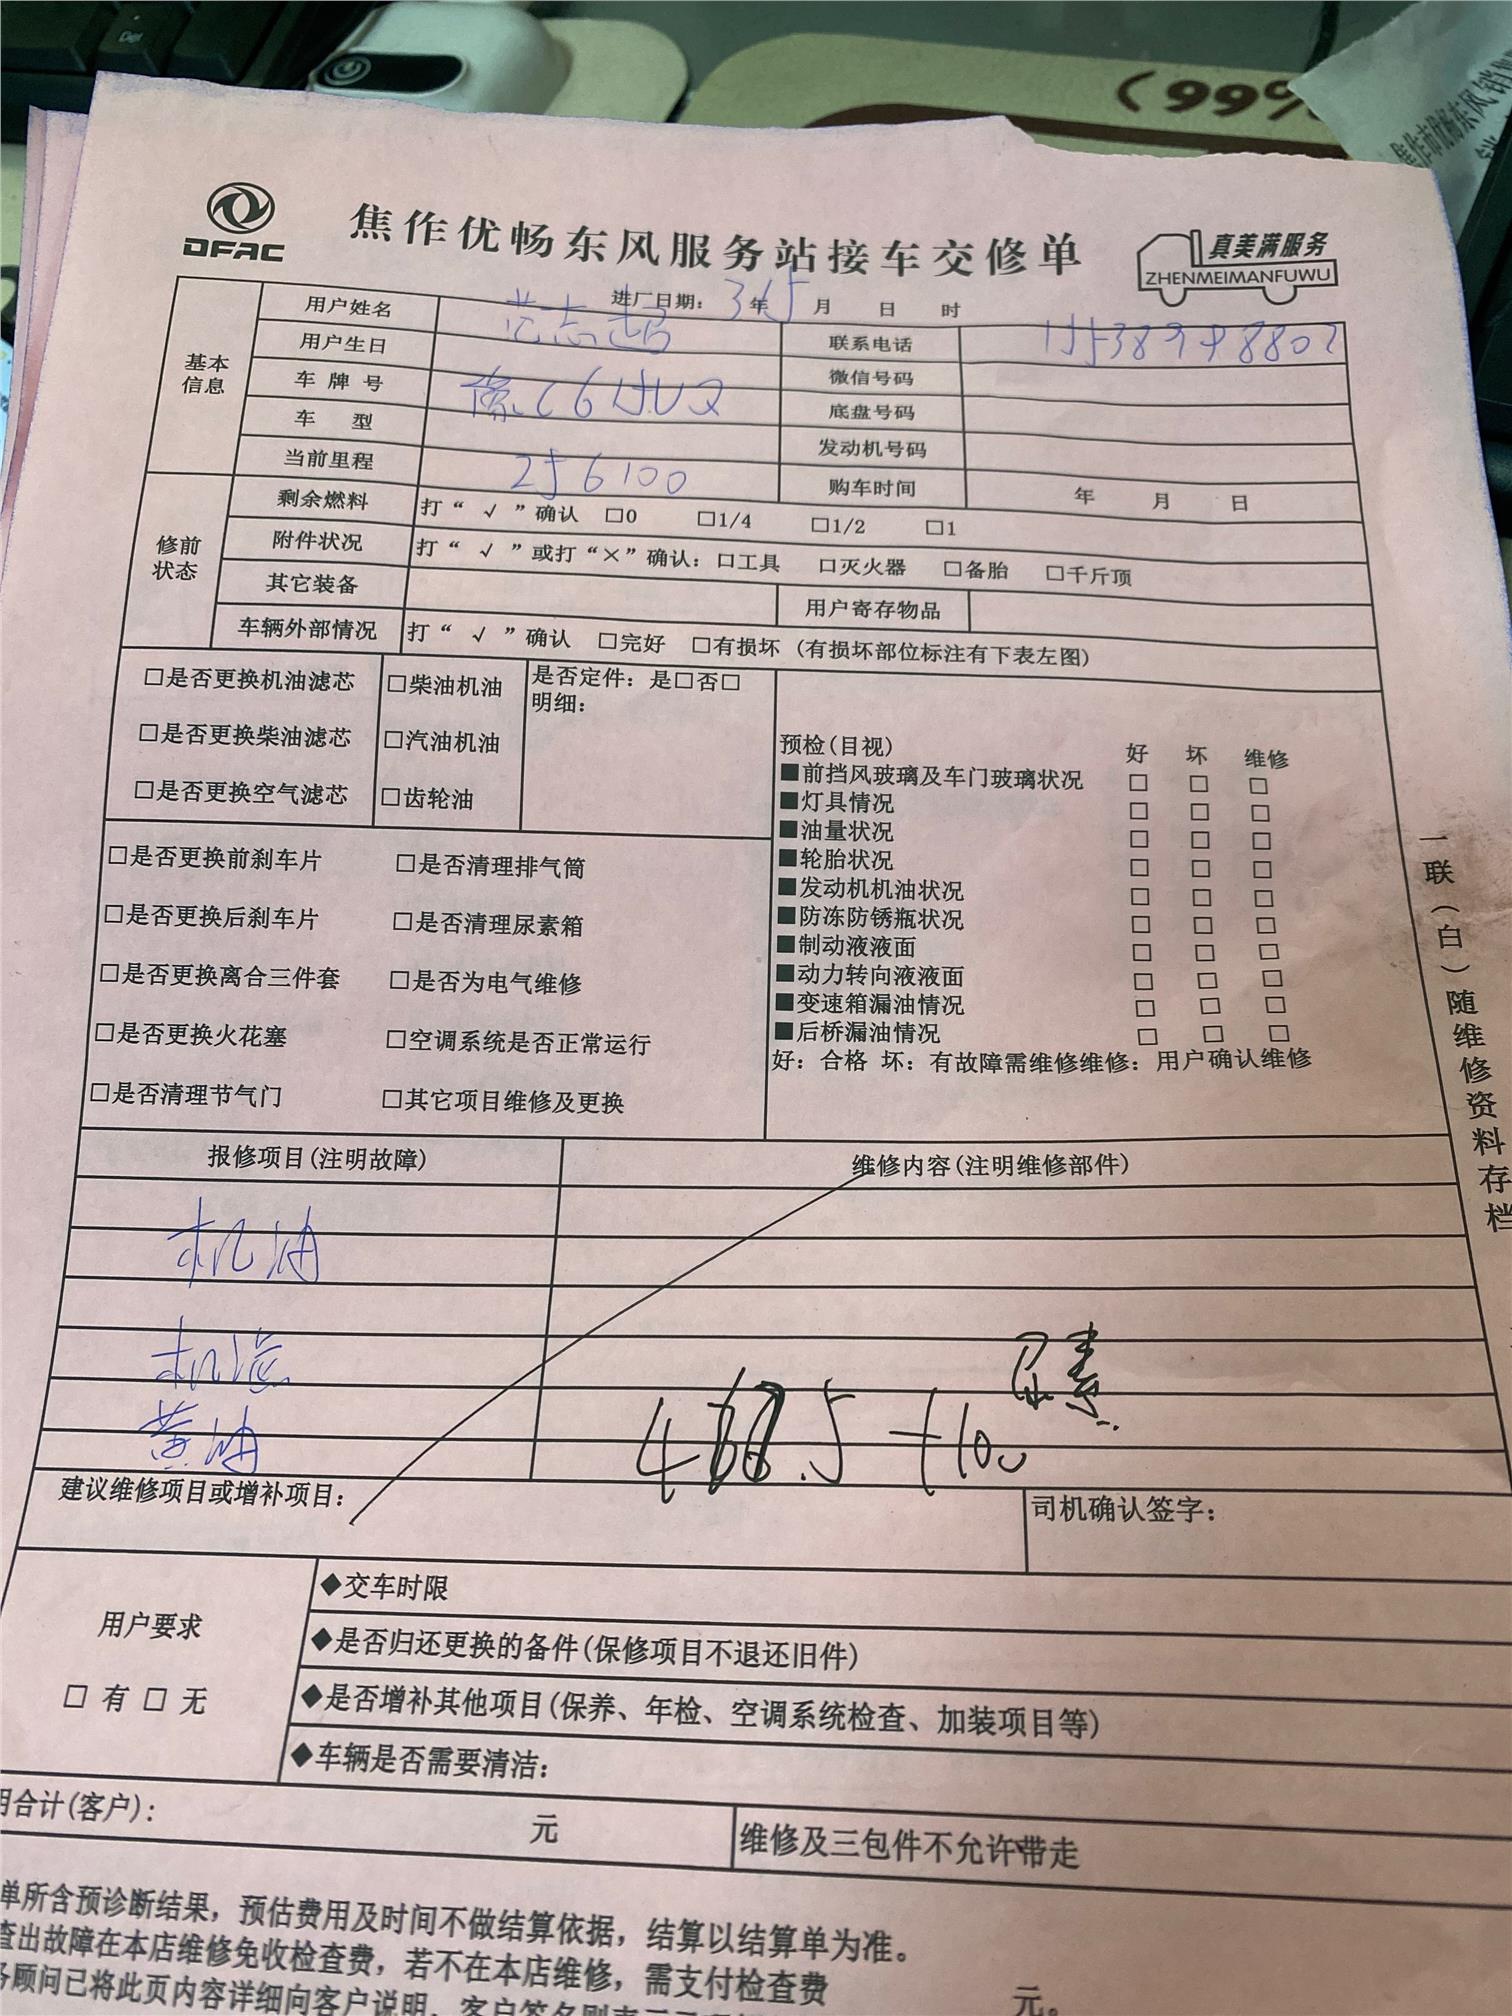 Del
(99%
焦作市优畅东风销售
DFAC
焦作优畅东风服务站接车交修单
真美满服务
ZHENMEIMANFUWU
进厂日期： 3年 15月 日 时
基本信息
用户姓名 范志超 联系电话
用户生日 微信号码
车牌号 底盘号码
车型 发动机号码
当前里程 256100 购车时间 年 月 日
修前状态
剩余燃料 打“√”确认 □0 □1/4 □1/2 □1
附件状况 打“√”或打“×”确认：□工具 □灭火器 □备胎 □千斤顶
其它装备 用户寄存物品
车辆外部情况 打“√”确认 □完好 □有损坏 (有损坏部位标注有下表左图)
□是否更换机油滤芯 □柴油机油 是否定件：是□否□
明细：
□是否更换柴油滤芯 □汽油机油
□是否更换空气滤芯 □齿轮油
□是否更换前刹车片 □是否清理排气筒
□是否更换后刹车片 □是否清理尿素箱
□是否更换离合三件套 □是否为电气维修
□是否更换火花塞 □空调系统是否正常运行
□是否清理节气门 □其它项目维修及更换
预检(目视) 好 坏 维修
■前挡风玻璃及车门玻璃状况 □ □ □
■灯具情况 □ □ □
■油量状况 □ □ □
■轮胎状况 □ □ □
■发动机机油状况 □ □ □
■防冻防锈瓶状况 □ □ □
■制动液液面 □ □ □
■动力转向液液面 □ □ □
■变速箱漏油情况 □ □ □
■后桥漏油情况 □ □ □
好：合格 坏：有故障需维修维修：用户确认维修
一联(白)随维修资料存档
报修项目(注明故障) 维修内容(注明维修部件)
机油
机滤
黄油
尿素
+100
建议维修项目或增补项目： 司机确认签字：
用户要求
□ 有 □ 无
◆交车时限
◆是否归还更换的备件(保修项目不退还旧件)
◆是否增补其他项目(保养、年检、空调系统检查、加装项目等)
◆车辆是否需要清洁：
合计(客户)： 元 维修及三包件不允许带走
单所含预诊断结果，预估费用及时间不做结算依据，结算以结算单为准。
查出故障在本店维修免收检查费，若不在本店维修，需支付检查费 元。
务顾问已将此页内容详细向客户说明，